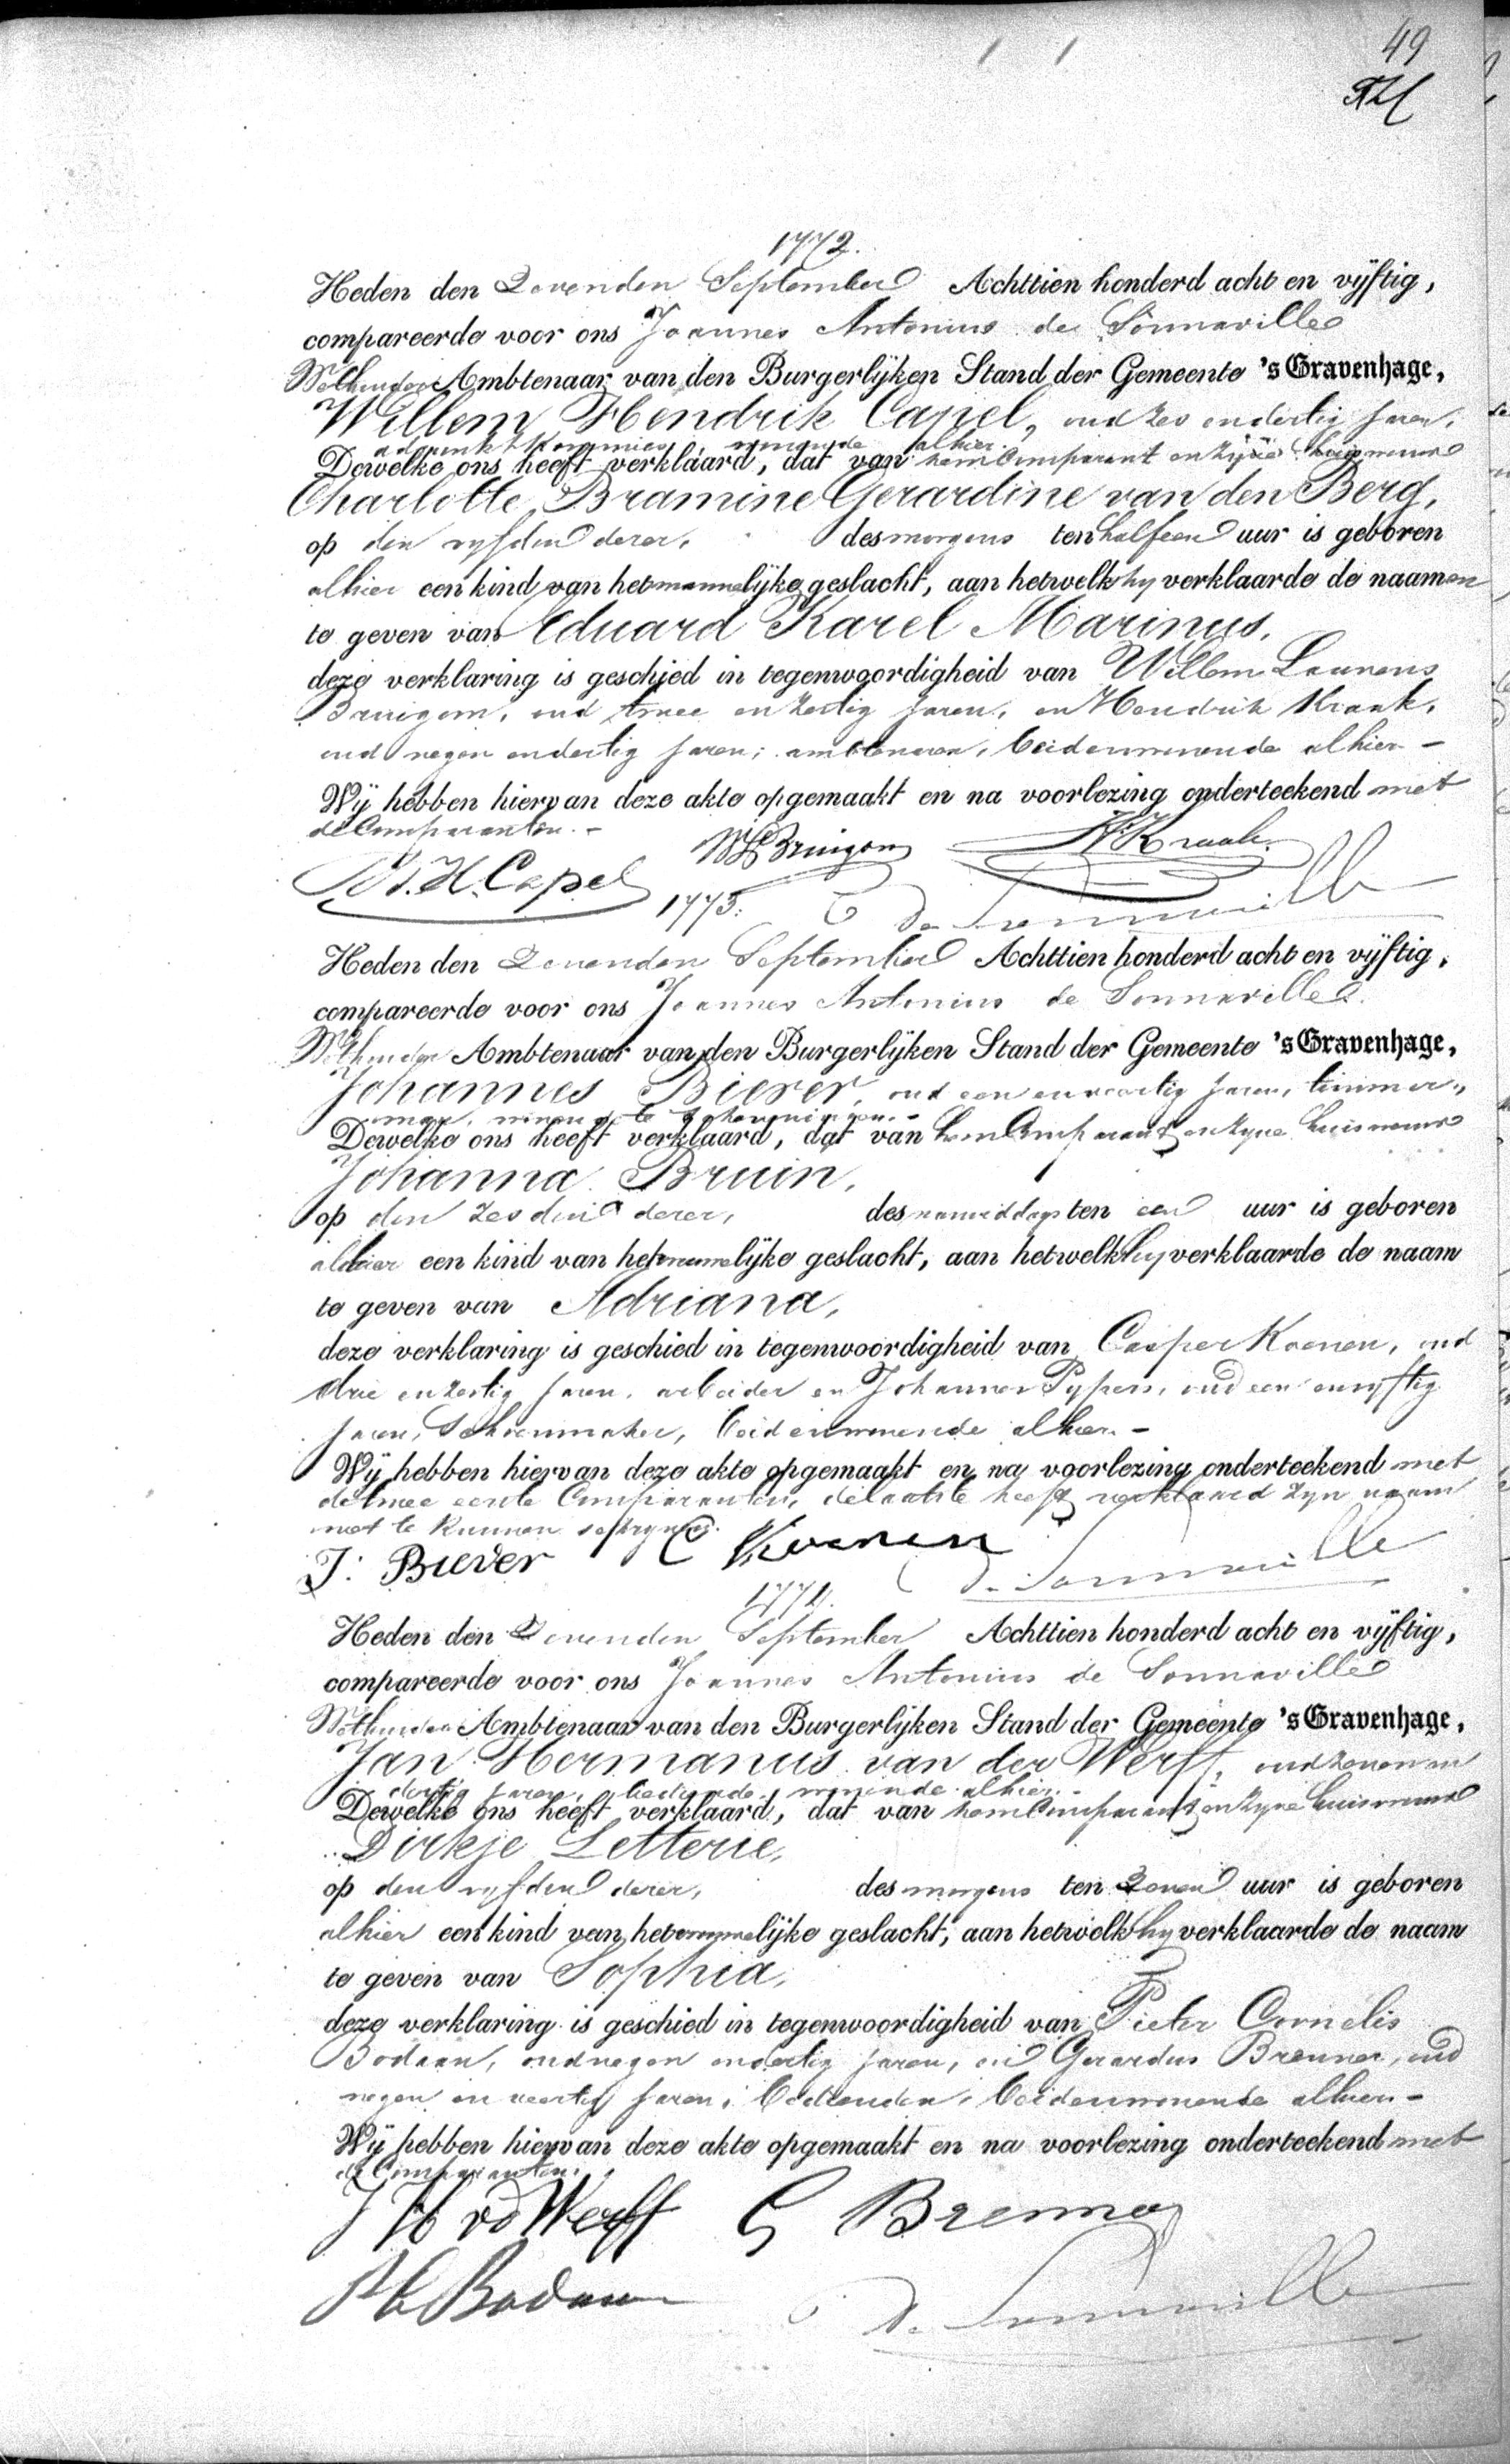 49
1772.
Heden den Zevenden September Achttien honderd acht en vijftig,
compareerde voor ons Joannes Antonius de Sonnaville
Wethouder Ambtenaar van den Burgerlijken Stand der Gemeente 's Gravenhage,
Willem Hendrik Capel, oud zes en dertig jaren,
adjunct Kommies, wonende alhier.
Dewelke ons heeft verklaard, dat van hem Comparant en zijne huisvrouw
Charlotte Bramine Gerardine van den Berg,
op den vyfden dezer, des morgens ten half een uur is geboren
alhier een kind van het mannelijke geslacht, aan hetwelk hy verklaarde de naamen
te geven van Eduard Karel Marinus,
deze verklaring is geschied in tegenwoordigheid van Willem Laurens
Bruigom, oud twee en zestig jaren, en Hendrik Kraak,
oud negen en dertig jaren; ambtenaren, beiden wonende alhier -
Wij hebben hiervan deze akte opgemaakt en na voorlezing onderteekend met
de Comparanten. -
W.H. Capel WL Bruigom H. Kraak
1773. de Sonnaville
Heden den Zevenden September Achttien honderd acht en vijftig,
compareerde voor ons Joannes Antonius de Sonnaville
Wethouder Ambtenaar van den Burgerlijken Stand der Gemeente 's Gravenhage,
Johannes Biever, oud een en veertig jaren, timmer-
man, wonende te Scheveningen. -
Dewelke ons heeft verklaard, dat van hem Comparant en zyne huisvrouw
Johanna Bruin,
op den zesden dezer, des namiddags ten een uur is geboren
aldaar een kind van het vrouwelijke geslacht, aan hetwelk hy verklaarde de naam
te geven van Adriana,
deze verklaring is geschied in tegenwoordigheid van Casper Koenen, oud
drie en zestig jaren, arbeider en Johannes Pypers, oud een en vyftig
jaren, Schoenmaker, beiden wonende alhier. -
Wij hebben hiervan deze akte opgemaakt en na voorlezing onderteekend met
de twee eerste Comparanten, de laatste heeft verklaard zyn naam
niet te kunnen schryven.
J. Biever C Koenen de Sonnaville
1774.
Heden den Zevenden September Achttien honderd acht en vijftig,
compareerde voor ons Joannes Antonius de Sonnaville
Wethouder Ambtenaar van den Burgerlijken Stand der Gemeente 's Gravenhage,
Jan Hermanus van der Werff, oud zeven en
dertig jaren, bediende, wonende alhier. -
Dewelke ons heeft verklaard, dat van hem Comparant en zyne huisvrouw
Dirkje Letterie,
op den vyfden dezer, des morgens ten zeven uur is geboren
alhier een kind van het vrouwelijke geslacht, aan hetwelk hy verklaarde de naam
te geven van Sophia,
deze verklaring is geschied in tegenwoordigheid van Pieter Cornelis
Bodaan, oud negen en dertig jaren, en Gerardus Brenner, oud
negen en veertig jaren, bedienden, beiden wonende alhier -
Wij hebben hiervan deze akte opgemaakt en na voorlezing onderteekend met
de Comparanten.
J H vd Werff G Brenner
PC Bodaan de Sonnaville